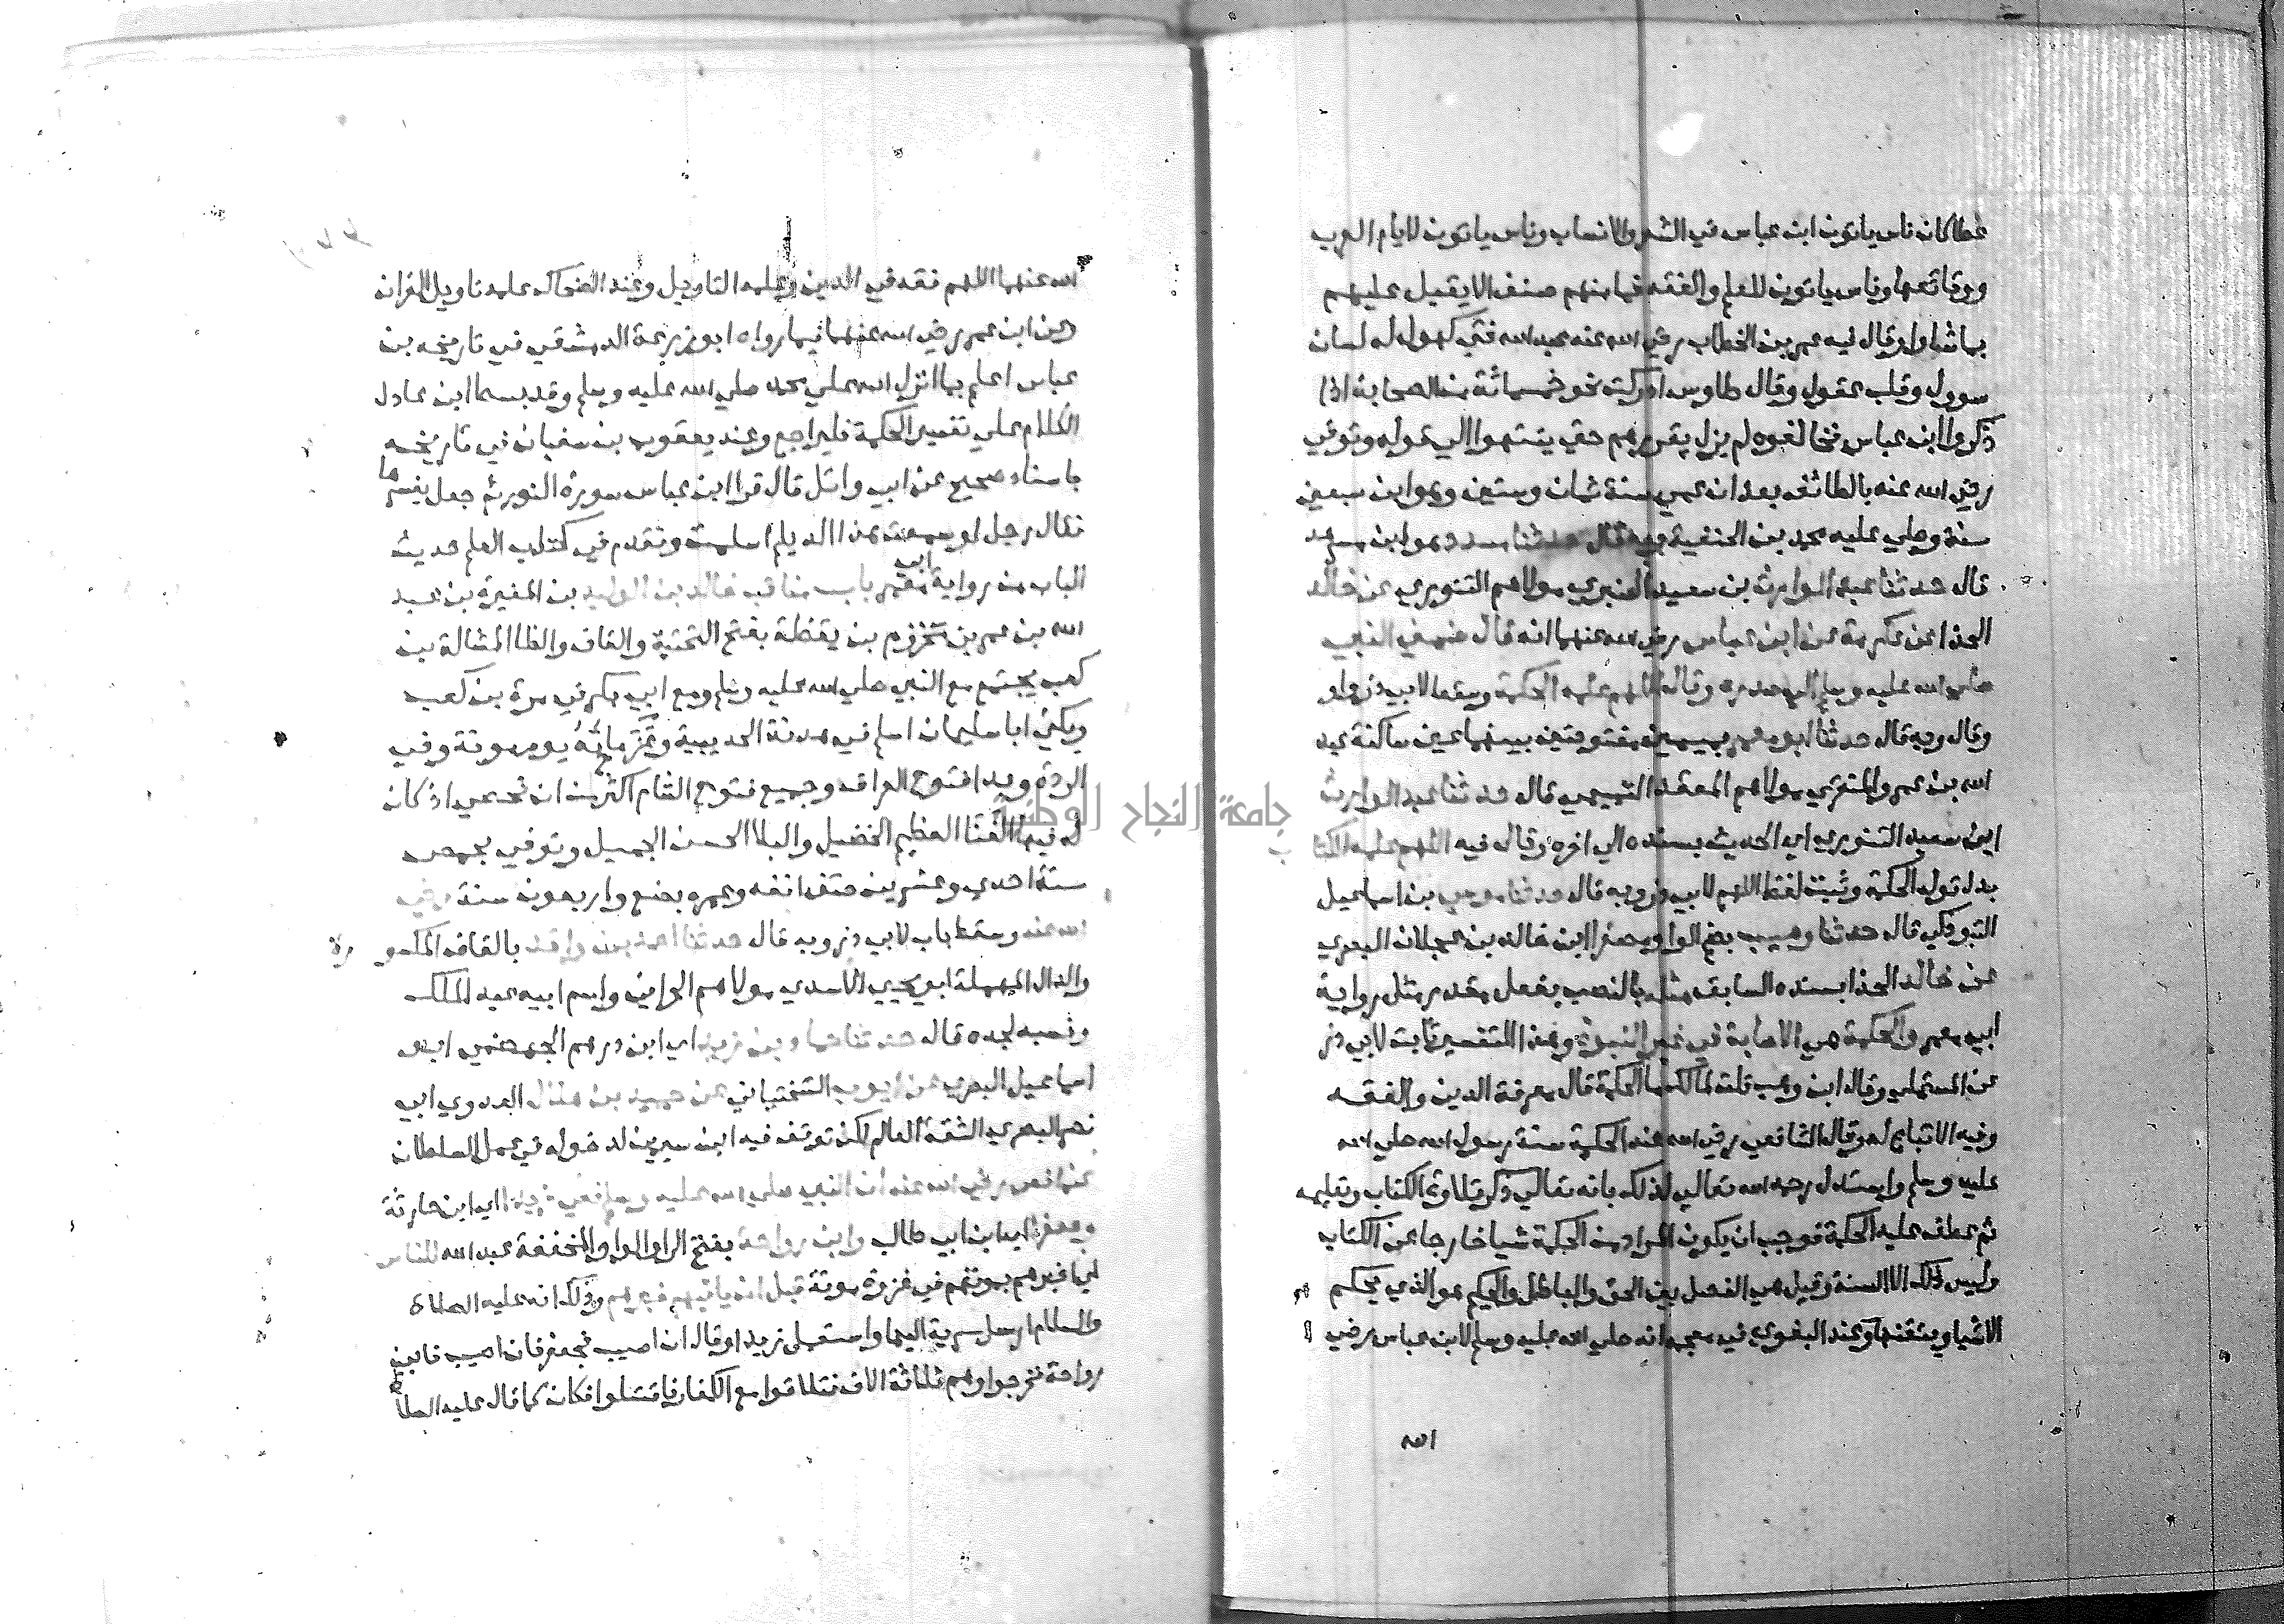 عطا كان ناس ياتون ابن عباس في الشعر والانساب وناس ياتون لايام العرب
ووقائعها وناس ياتون للعلم والفقه فما منهم صنف الا يقبل عليهم
بما شاوا وقال فيه عمر بن الخطاب رضي الله عنه عبد الله فتي كهول له لسان
سوول وقلب عقول وقال طاوس ادركت نحو خمسمائة من الصحابة اذا
ذكروا ابن عباس فخالفوه لم يزل يقررهم حتي ينتهوا الي قوله وتوفي
رضي الله عنه بالطائف بعد ان عمي سنة ثمان وستين وهو ابن سبعين
سنة وصلي عليه محمد بن الحنفية وبه قال حدثنا مسدد هو ابن مسرهد
قال حدثنا عبد الوارث بن سعيد العنبري مولاهم التنوري عن خالد
الحذا عن عكرمة عن ابن عباس رضي الله عنهما انه قال ضمني النبي
صلي الله عليه وسلم الي صدره وقال اللهم علمه الحكمة وسقط لابي ذر واو
وقال وبه قال حدثنا ابو معمر بميمين مفتوحتين بينهما عين ساكنة عبد
الله بن عمرو المنقري مولاهم المقعد التميمي قال حدثنا عبد الوارث
ابن سعيد التنوري اي الحديث بسنده الي اخره وقال فيه اللهم علمه الكتاب
بدل قوله الحكمة وثبت لفظ اللهم لابي ذر وبه قال حدثنا موسي بن اسماعيل
التبوذكي قال حدثنا وهيب بضم الواو مصغرا ابن خالد بن عجلان البصري
عن خالد الحذا بسنده السابق مثله بالنصب بفعل مقدر مثل رواية
ابي معمر والحكمة هي الاصابة في غير النبوة وهذا التفسير ثابت لابي ذر
عن المستملي وقال ابن وهب قلت لمالك ما الحكمة قال معرفة الدين والفقه
وفيه الاتباع له وقال الشافعي رضي الله عنه الحكمة سنة رسول الله صلي الله
عليه وسلم واستدل رحمه الله تعالي لذلك بانه تعالي ذكر تلاوة الكتاب وتعليمه
ثم عطف عليه الحكمة فوجب ان يكون المراد من الحكمة شيا خارجا عن الكتاب
وليس ذلك الا السنة وقيل هي الفصل بين الحق والباطل والحكيم هو الذي يحكم
الاشيا ويتقنها وعند البغوي في معجمه انه صلي الله عليه وسلم لابن عباس رضي
الله
الله عنهما اللهم فقهه في الدين وعلمه التاويل وعند الضحاك علمه تاويل القران
وعن ابن عمر رضي الله عنهما فيما رواه ابو زرعة الدمشقي في تاريخه بن
عباس اعلم بما انزل الله علي محمد صلي الله عليه وسلم وقد بسط ابن عادل
الكلام علي تفسير الحكمة فليراجع وعند يعقوب بن سفيان في تاريخه
باسناد صحيح عن ابي وائل قال قرا ابن عباس سورة النور ثم جعل يفسرها
فقال رجل لو سمعت هذا الديلم اسلمت وتقدم في كتاب العلم حديث
الباب من رواية ابي معمر باب مناقب خالد بن الوليد بن المغيرة بن عبد
الله بن عمر بن مخزوم بن يقظة بفتح التحتية والقاف والظا المشالة بن
كعب يجتمع مع النبي صلي الله عليه وسلم ومع ابي بكر في مرة بن كعب
ويكني ابا سليمان اسلم في هدنة الحديبية وعزماته يوم موتة وفي
الردة وبدا فتوح العراق وجميع فتوح الشام اكثر من ان تحصي اذ كان
له فيها الغنا العظيم الخضيل والبلا الحسن الجميل وتوفي بحمص
سنة احدي وعشرين حتف انفه وعمره بضع واربعون سنة رضي
الله عنه وسقط باب لابي ذر وبه قال حدثنا احمد بن واقد بالقاف المكسورة
والدال المهملة ابو يحيي الاسدي مولاهم الحراني واسم ابيه عبد الملك
ونسبه لجده قال حدثنا حماد بن زيد اي ابن درهم الجهضمي ابو
اسماعيل البصري عن ايوب السختياني عن حميد بن هلال العدوي ابي
نصر البصري الثقة العالم لكن توقف فيه ابن سيرين لدخوله في عمل السلطان
عن انس رضي الله عنه ان النبي صلي الله عليه وسلم نعي زيدا اي ابن حارثة
وجعفرا اي ابن ابي طالب وابن رواحة بفتح الرا والواو المخففة عبد الله للناس
اي اخبرهم بموتهم في غزوة موتة قبل ان ياتيهم خبرهم وذلك انه عليه الصلاة
والسلام ارسل سرية اليها واستعمل زيدا وقال ان اصيب فجعفر فان اصيب فابن
رواحة فخرجوا وهم ثلاثة الاف فتلاقوا مع الكفار فاقتتلوا فكان كما قال عليه الصلاة
جامعة النجاح الوطنية